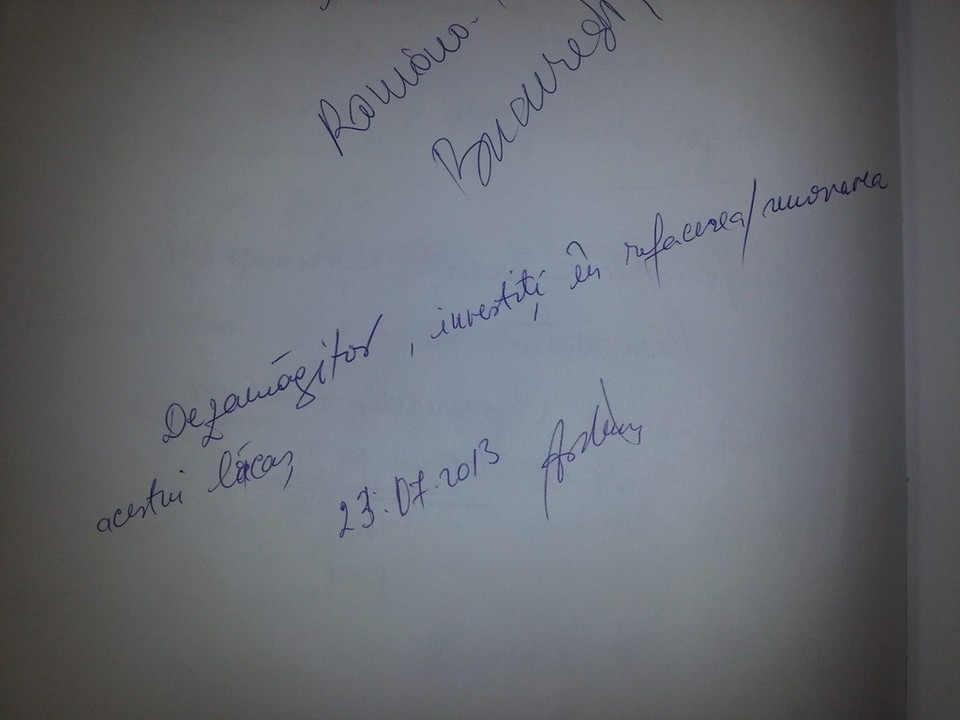 România
București
Dezamăgitor, investiți în refacerea/renovarea
acestui lăcaș
23.07.2013